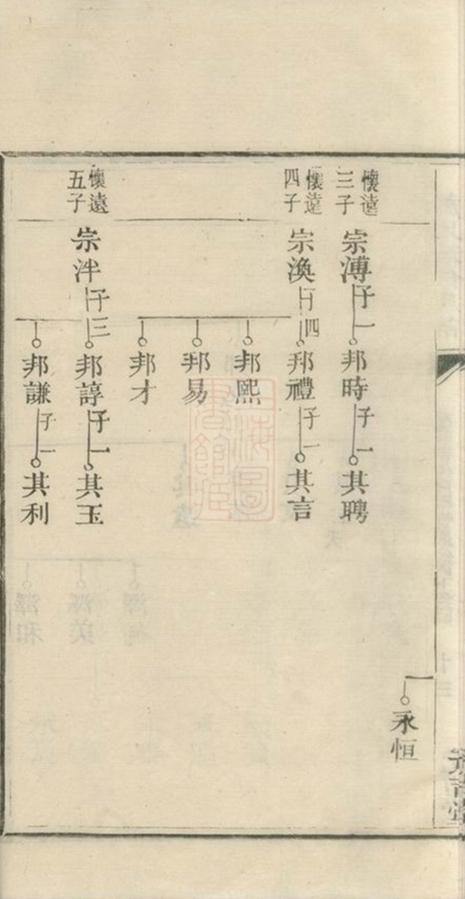 永恒
懷遠三子
宗溥子一
邦時子一
其聘
懷遠四子
宗渙子四
邦禮子一
其言
邦熙
邦易
邦才
懷遠五子
宗泮子三
邦諄子一
其玉
邦謙子一
其利